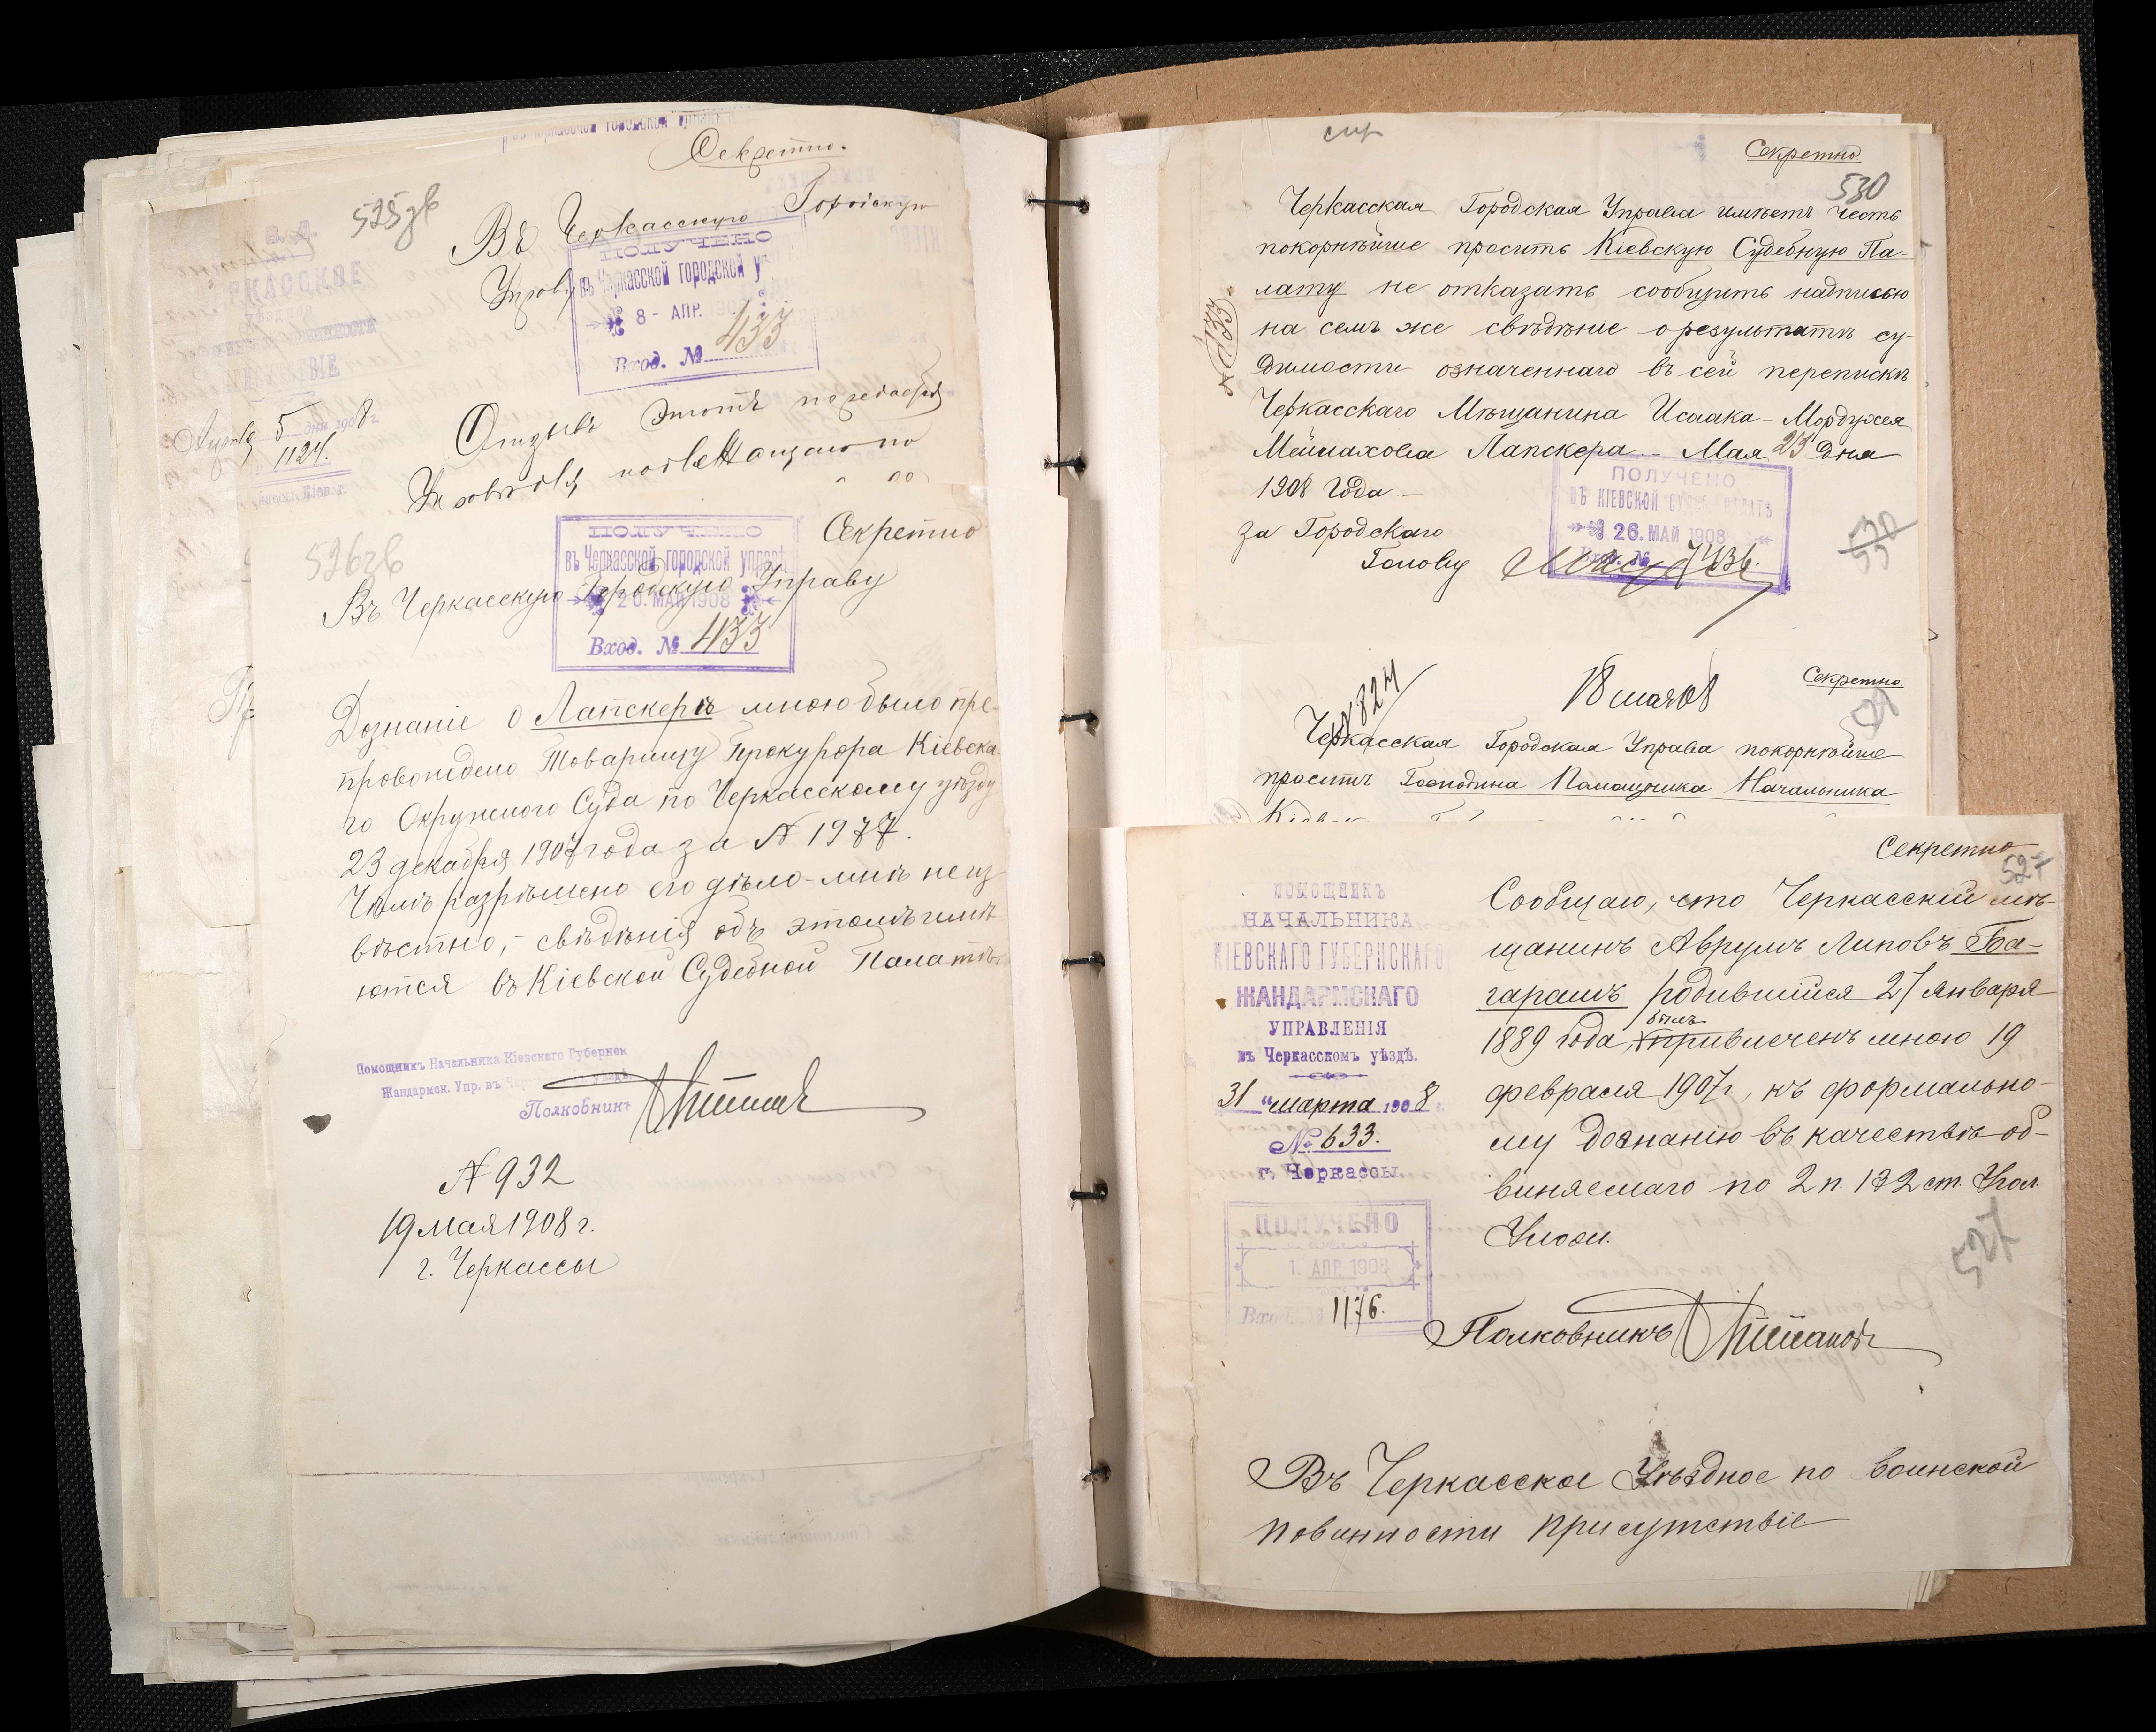 Секретно.
525зв
Въ Черкасскую Городскую
Управу
ПОЛУЧЕНО
въ Черкасской городской
8 - АПР.
Вход. № 433
5
1908
1124.
Отзывъ этотъ
526зв
Секретно
Въ Черкасскую Городскую Управу
ПОЛУЧЕНО
въ Черкасской городской управѣ
20. МАЙ 1908
Вход. № 433
Дознаніе о Лапскерѣ мною было пре-
провождено Товарищу Прокурора Кіевска-
го Окружного Суда по Черкасскому уѣзду
23 декабря 1907 года за № 1977.
Чѣмъ разрѣшено его дѣло - мнѣ неиз-
вѣстно, - свѣдѣнія объ этомъ имѣ-
ются въ Кіевской Судебной Палатѣ.
Помощникъ Начальника Кіевскаго Губернск
Жандармск. Упр. въ уѣздѣ
Полковникъ
№ 932
19 мая 1908 г.
г. Черкассы
Секретно.
530
Черкасская Городская Управа имѣетъ честь
покорнѣйше просить Кіевскую Судебную Па-
лату не отказать сообщить надписью
на семъ же свѣдѣніе о результатѣ су-
димости означеннаго въ сей перепискѣ
Черкасскаго Мѣщанина Исаака-Мордухея
Мейлахова Лапскера. - Мая 23 дня
1908 года. -
за Городскаго
Голову
№ 433
ПОЛУЧЕНО
ВЪ КІЕВСКОЙ
26. МАЙ 1908
Вход. № 7436.
530
Секретно.
№ 824
18 мая 08
Черкасская Городская Управа покорнѣйше
проситъ Господина Помощника Начальника
Секретно
527
ПОМОЩНИКЪ
НАЧАЛЬНИКА
КІЕВСКАГО ГУБЕРНСКАГО
ЖАНДАРМСКАГО
УПРАВЛЕНІЯ
въ Черкасскомъ уѣздѣ.
31 марта 1908
№ 633.
г. Черкассы.
ПОЛУЧЕНО
1. АПР. 1908
Вход. № 1176.
Сообщаю, что Черкасскій мѣ-
щанинъ Аврумъ Липовъ Ба-
гарашъ родившійся 27 января
1889 года, былъ привлеченъ мною 19
февраля 1907 г, къ формально-
му дознанію въ качествѣ об-
виняемаго по 2 п. 132 ст. Угол.
Улож.
527
Полковникъ
Въ Черкасское Уѣздное по воинской
повинности Присутствіе